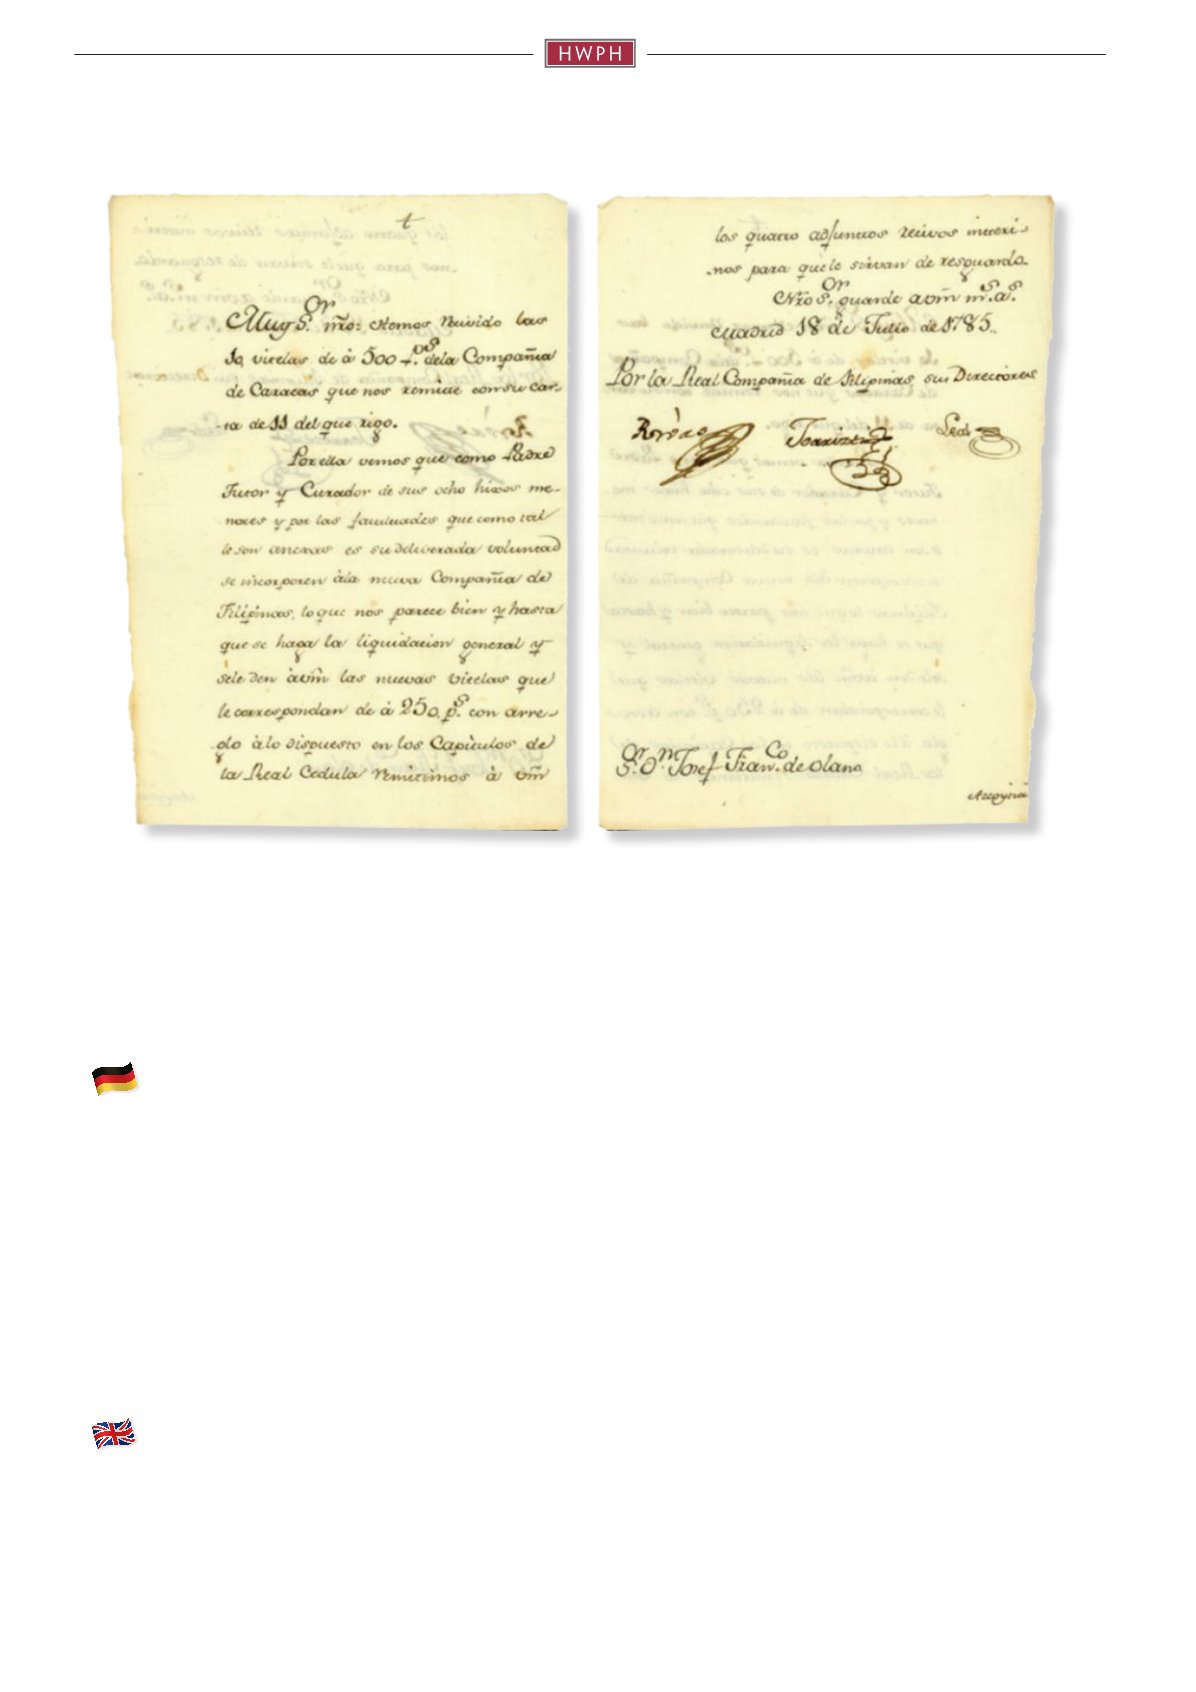 HWPH
Muy S.or mío: Hemos Recivido las
10, vicelas de à 500 p.os dela Compañia
de Caracas que nos remite con su car-
ta de 11 del que rigo.
Por ella vemos que como Padre
Tutor y Curador de sus ocho hixos me-
nores y por las facultades que como tal
le son anexas es su deliverada voluntad
se incorporen àla nueva Compañia de
Filipinas, lo que nos parece bien y hasta
que se haga la liquidacion general y
sele den à vm̃ las nuevas que
le correspondan de à 250, p.s con arre-
glo à lo dispuesto en los Capitulos de
la Real Cedula remitimos à vm̃
los quatro adjuntos recivos interi-
nos para que le sirvan de resguardo.
Nr̃o S.or guarde a vm̃ m.s a.s
Madrid 18 de Julio de 1785.
Por la Real Compañia de Filipinas sus Directores
Leal
S.or D.n Josef Fran.co de Olano